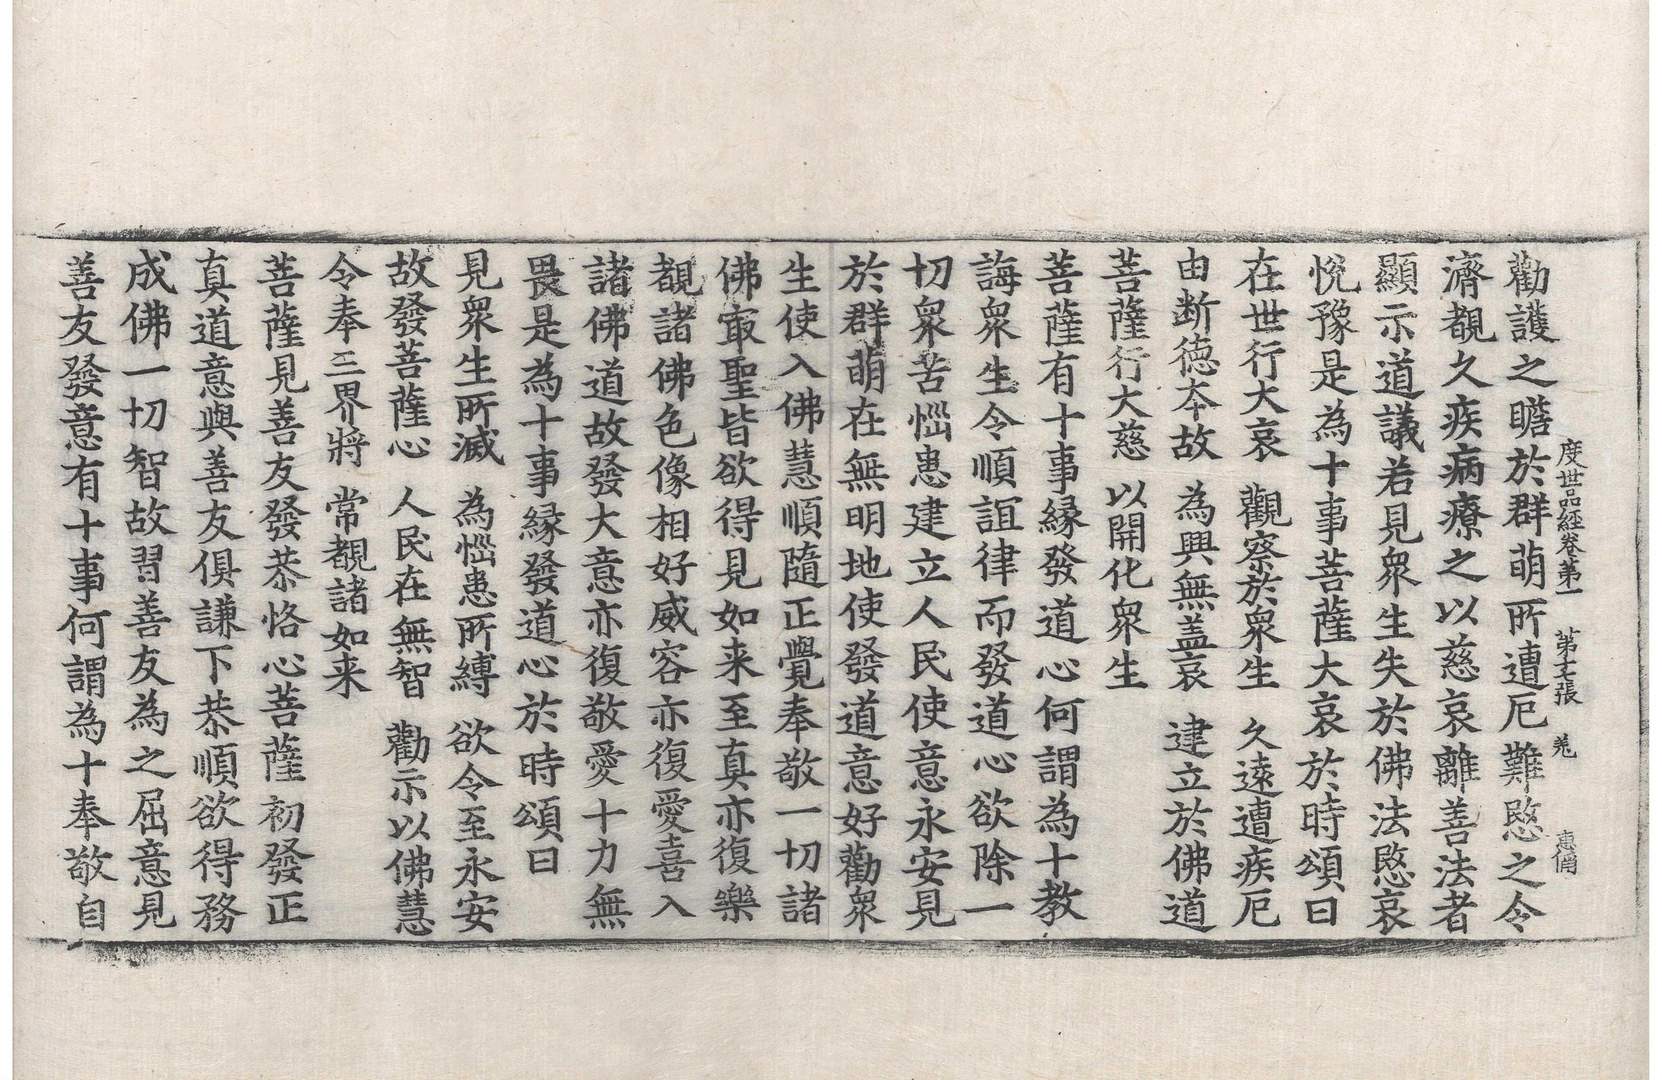 度世品經卷第一 第十七張 羌 惠倫
勸護之瞻於群萌所遭厄難愍之令
濟覩久疾病療之以慈哀離善法者
顯示道議若見衆生失於佛法愍哀
悅豫是為十事菩薩大哀於時頌曰
在世行大哀 觀察於衆生 久遠遭疾厄
由断德夲故 為興無盖哀 建立於佛道
菩薩行大慈 以開化衆生
菩薩有十事縁發道心何謂為十教
誨衆生令順誼律而發道心欲除一
切衆苦惱患建立人民使意永安見
於群萌在無明地使發道意好勸衆
生使入佛慧順隨正覺奉敬一切諸
佛㝡聖皆欲得見如来至真亦復樂
覩諸佛色像相好威容亦復愛喜入
諸佛道故發大意亦復敬愛十力無
畏是為十事縁發道心於時頌曰
見衆生所滅 為惱患所縛 欲令至永安
故發菩薩心 人民在無智 勸示以佛慧
令奉三界將 常覩諸如来
菩薩見善友發恭恪心菩薩初發正
真道意與善友俱謙下恭順欲得務
成佛一切智故習善友為之屈意見
善友發意有十事何謂為十奉敬自